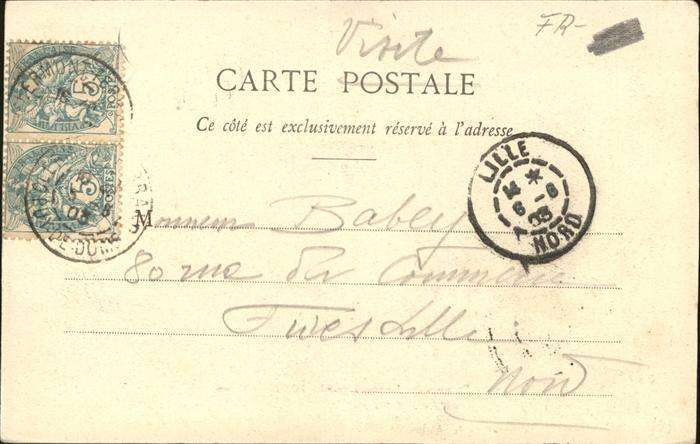 Visite
FR-
CARTE POSTALE
Ce côté est exclusivement réservé à l'adresse
LILLE
NORD
Monsieur Babey
80 rue du Commerce
Fives Lille
Nord